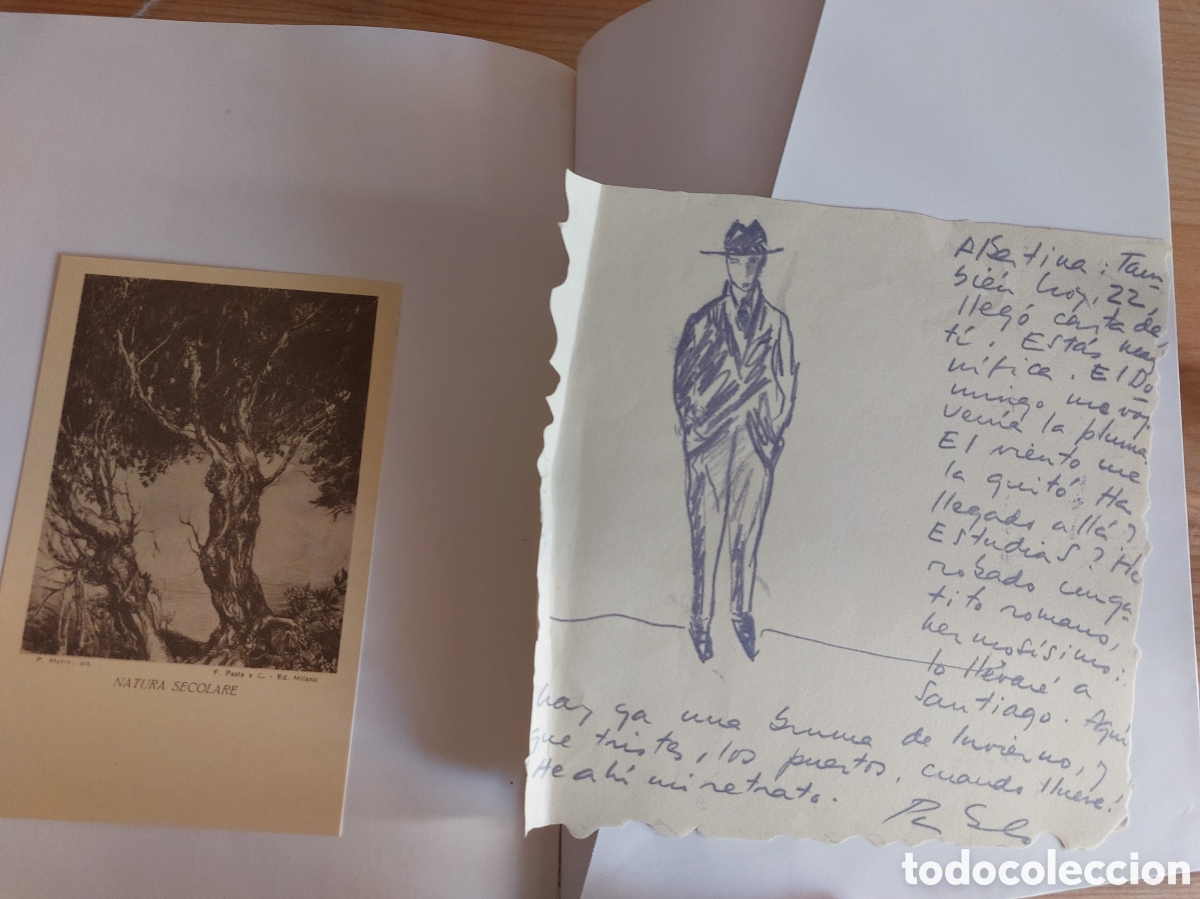 P. Morro: dis.
F. Pasta e C. - Ed. Milano
NATURA SECOLARE
Albertina: Tam-
bién hoy, 22,
llegó carta de
tí. Estás mag
nífica. El Do
mingo me voy.
Venía la pluma
El viento me
la quitó. Ha
llegado allá?
Estudias? He
robado un ga-
tito romano,
hermosísimo:
lo llevaré a
Santiago. Aquí
hay ya una bruma de Invierno, y
que tristes, los puertos, cuando llueve!
He ahí mi retrato.
Pablo
todocoleccion